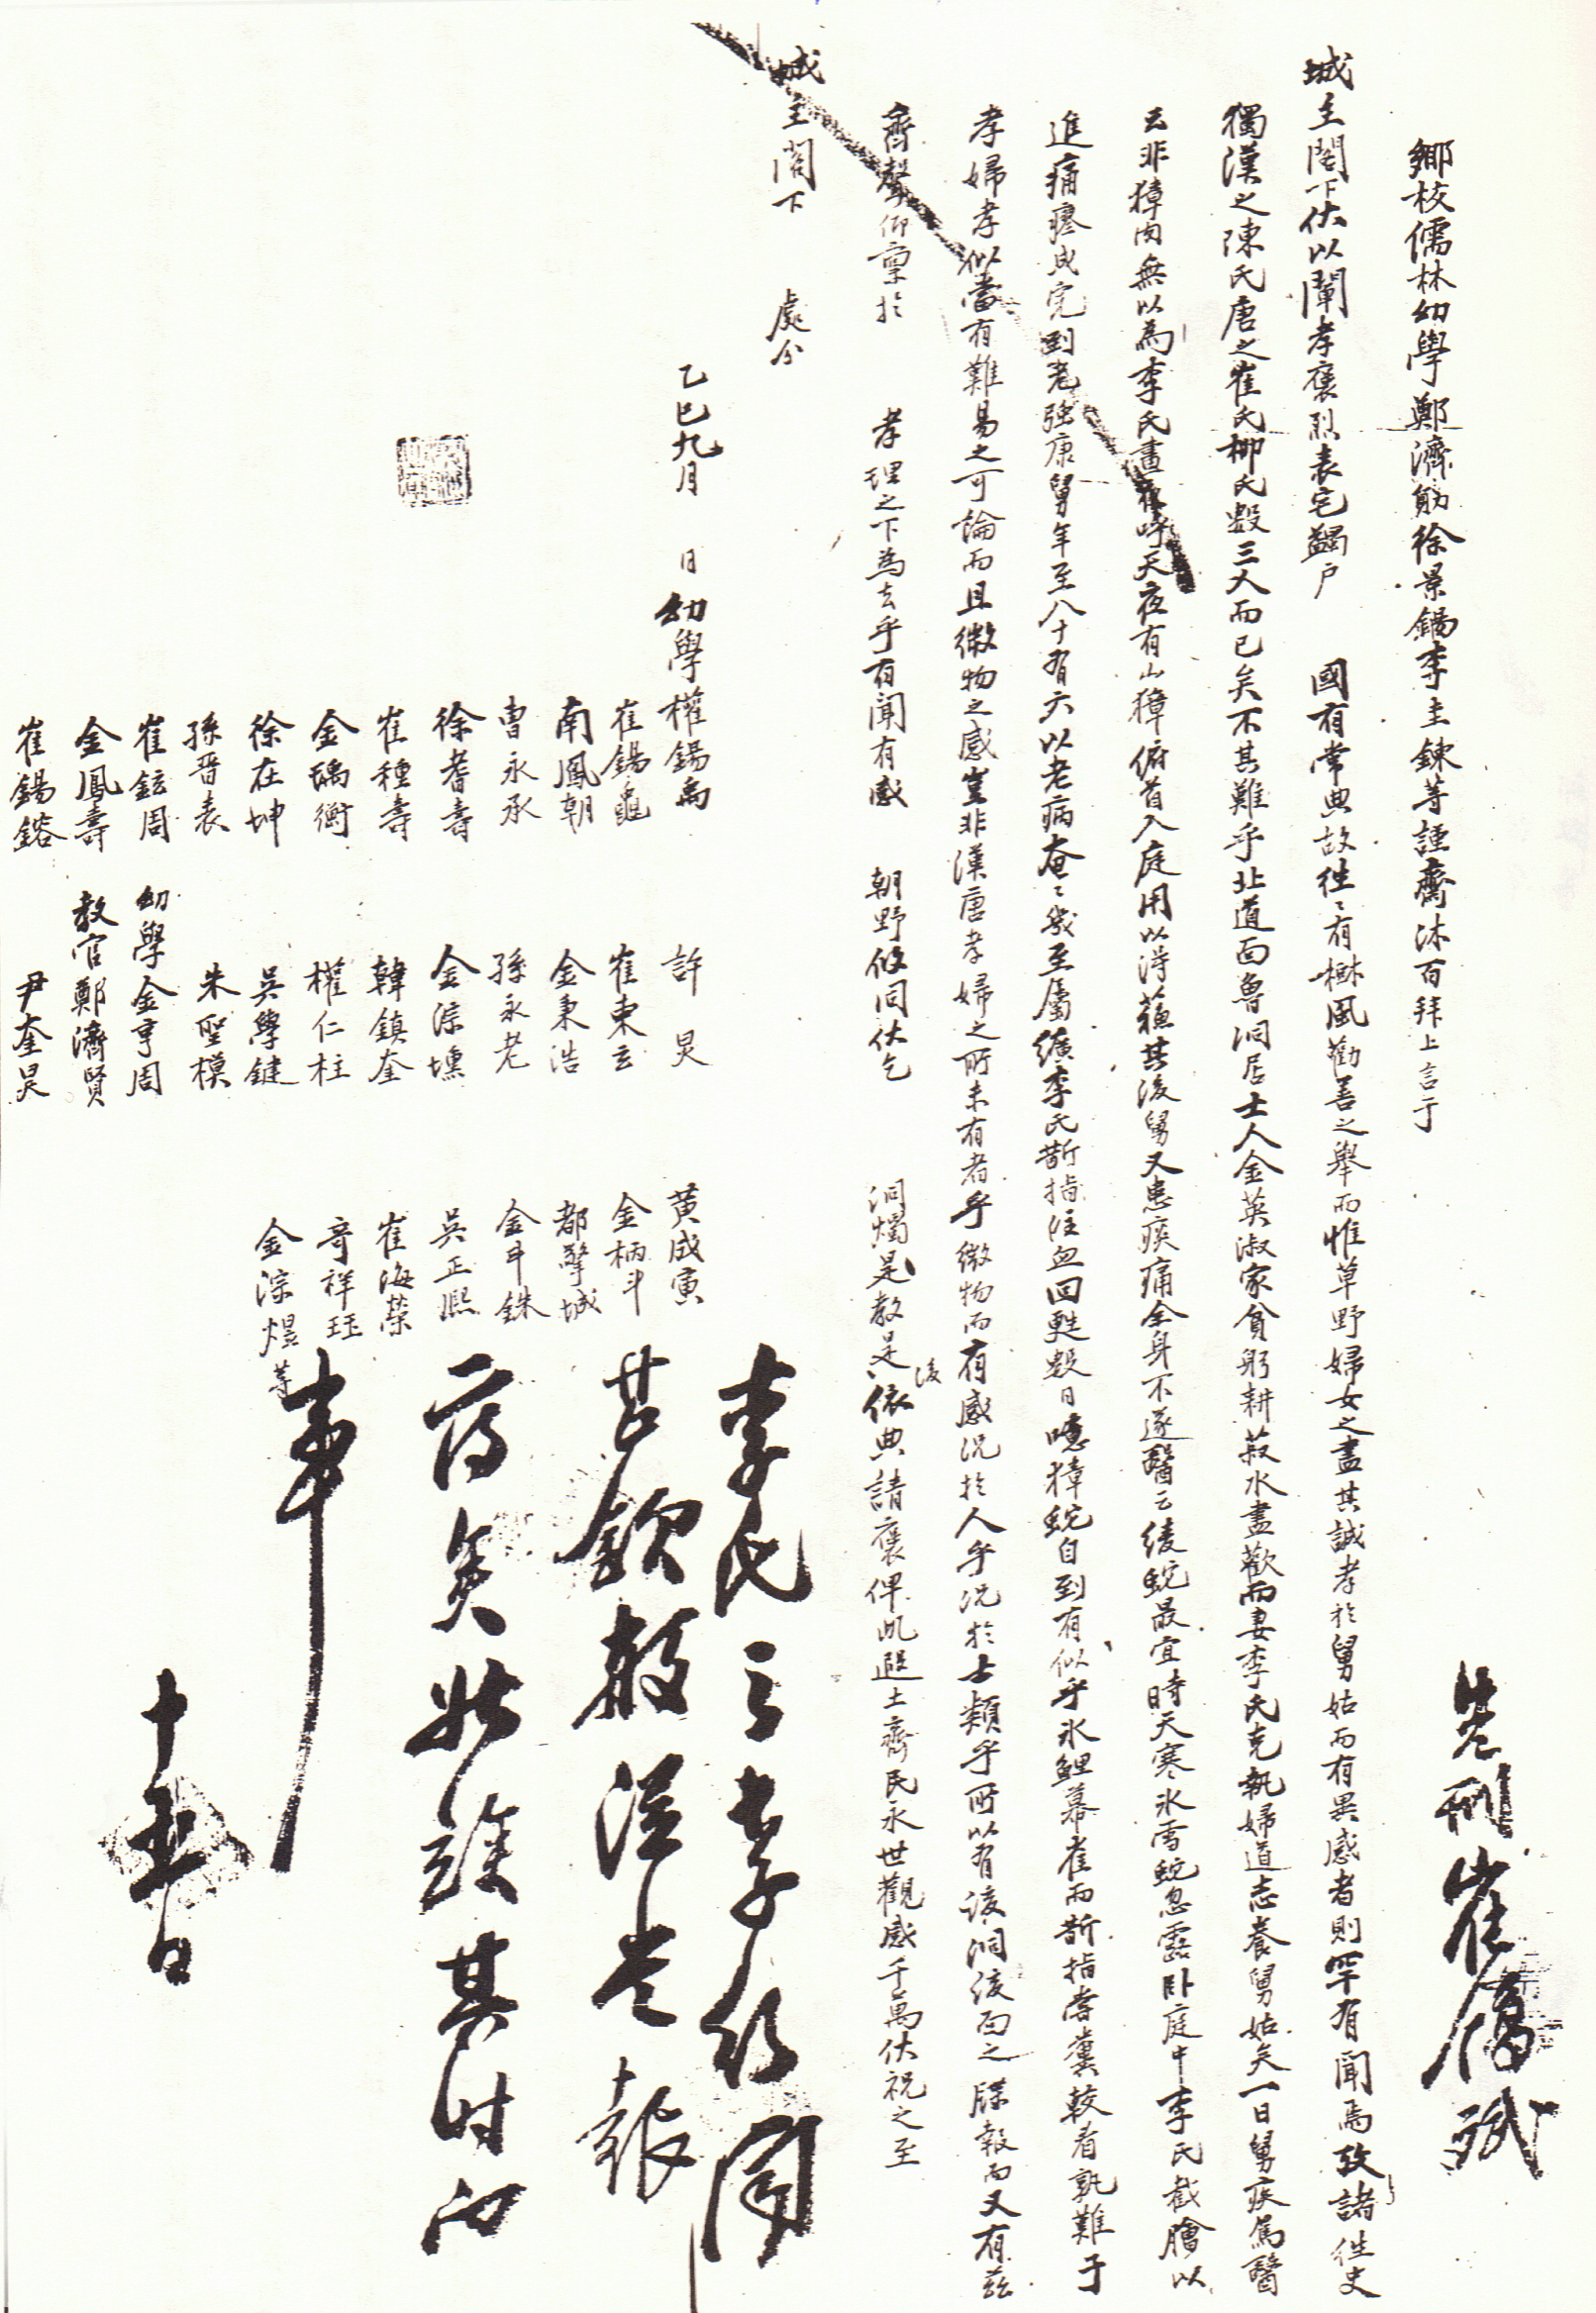 鄕校儒林幼學鄭濟勛徐景錫李圭鍊等謹齋沐百拜上言于
城主閤下伏以闡孝褒烈表宅蠲户 國有常典故往〻有樹風勸善之舉而惟草野婦女之盡其誠孝於舅姑而有異感者則罕有聞焉攷諸往史
獨漢之陳氏唐之崔氏柳氏數三人而已矣不其難乎北道面魯洞居士人金英淑家貧躬耕菽水盡歡而妻李氏克執婦道志養舅姑矣一日舅疾篤醫
云非獐肉無以為李氏晝宵呼天夜有山獐俯首入庭用以得蘓其後舅又患痰痛全身不遂醫云綾蛇最宜時天寒氷雪蛇忽露卧庭中李氏截膾以
進痛瘳成完到老強康舅年至八十有六以老病奄〻幾至屬纊李氏斷指注血回甦數日噫獐蛇自到有似乎氷鯉幕雀而斷指嘗糞較看孰難于
孝婦孝似當有難易之可論而且微物之感豈非漢唐孝婦之所未有者乎微物而有感况於人乎况於士類乎所以有該洞該面之牒報而又有玆
齊聲仰禀於 孝理之下為去乎有聞有感 朝野攸同伏乞 洞燭是敎是後依典請褒俾此遐土齊民永世觀感千萬伏祝之至
城主閤下 處分
乙巳九月 日幼學權錫禹 許炅 黃成寅
崔錫龜 崔東云 金柄斗
南鳳朝 金秉浩 都擎城
曺永承 孫永老 金斗銖
徐耆壽 金淙壎 吳正熙
崔種壽 韓鎮奎 崔海榮
金瑀衡 權仁柱 奇祥珏
徐在坤 吳學鍵 金淙煜等
孫晋表 朱聖模
崔鉉周 幼學金亨周
金鳳壽 敎官鄭濟賢
崔錫鎔 尹奎炅
李氏之孝行聞
甚欽敬從當報
府矣姑竢其時向
事
十五日